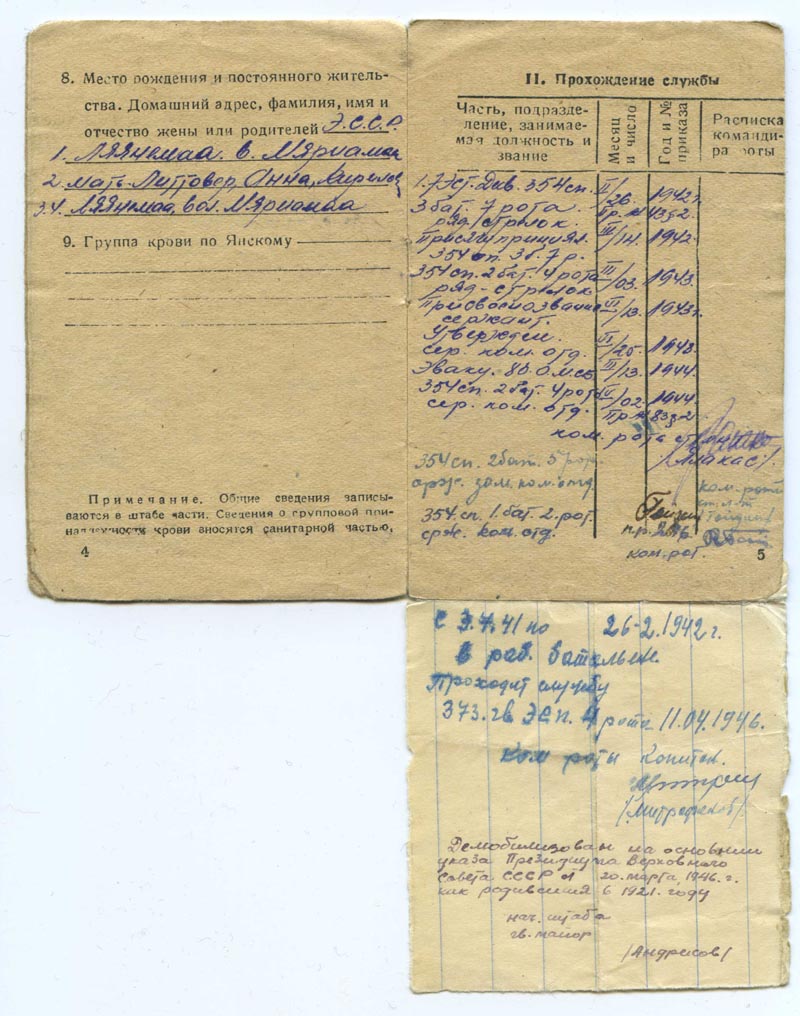 8. Место рождения и постоянного житель-
ства. Домашний адрес, фамилия, имя и
отчество жены или родителей Э.С.С.Р.
1. Ляянемаа. в. Мяриамаа
2. мать-Литтовер, Анна,
3.4. Ляянемаа, вол. Мяриамаа
9. Группа крови по Янскому
Примечание. Общие сведения записы-
ваются в штабе части. Сведения о групповой при-
надлежности крови вносятся санитарной частью,
4
II. Прохождение службы
Часть, подразде-
ление, занимае-
мая должность и
звание
Месяц
и число
Год и №
приказа
Расписка
команди-
ра роты
1. 7 Эст. Див. 354 сп. II/26 1942 г.
3 бат. 7 рота. пр. № 43
ряд/стрелок.
Присягу принял III/14. 1942.
354 сп. 3б. 7 р.
354 сп. 2 бат. 4 рота III/03. 1943.
ряд-стрелок
Присвоено звание VI/13. 1943 г.
сержант.
Утвержден. VI/25. 1943.
сер. ком. отд.
Эваку. 80. Омсб III/13. 1944.
354 сп. 2 бат. 4 рота V/02. 1944
сер. ком. отд. пр. № 83
ком. рота
354 сп. 2 бат. 5 рот.
срж. зам. ком. отд. ком. роты
354 сп. 1. бат. 2. рот.
срж. ком. отд.
ком. рот.
5
с 3.7.41 по 26-2.1942 г.
в раб. батальон.
Проходит службу
373. гв ЭСП. 4 рота 11.04.1946.
Ком роты Копитан.
/Митрафанов/
Демобилизован на основнии
указа Президиума Верховного
Совета СССР от 20. марта 1946. г.
как родившийся в 1921. году
нач. штаба
гв. майор
/Андрисов/